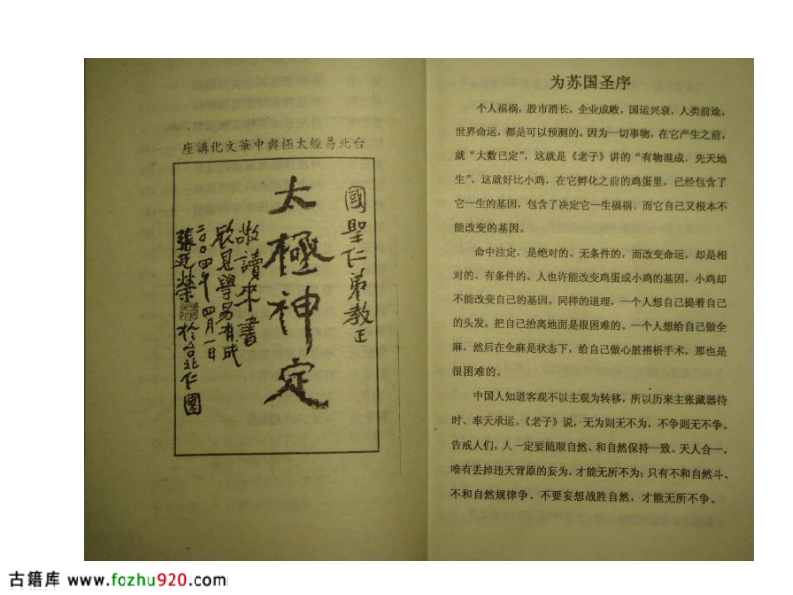 台北易經太極與中華文化講座
國聖仁弟教正
太極神定
敬讀來書
欣見學易有成
二〇〇四年四月一日
張廷榮於台北仁園
为苏国圣序
个人福祸，股市消长，企业成败，国运兴衰，人类前途，
世界命运，都是可以预测的。因为一切事物，在它产生之前，
就“大数已定”，这就是《老子》讲的“有物混成，先天地
生”，这就好比小鸡，在它孵化之前的鸡蛋里，已经包含了
它一生的基因，包含了决定它一生福祸、而它自己又根本不
能改变的基因。
命中注定，是绝对的、无条件的，而改变命运，却是相
对的、有条件的。人也许能改变鸡蛋或小鸡的基因，小鸡却
不能改变自己的基因。同样的道理，一个人想自己提着自己
的头发，把自己抬离地面是很困难的。一个人想给自己做全
麻，然后在全麻是状态下，给自己做心脏搭桥手术，那也是
很困难的。
中国人知道客观不以主观为转移，所以历来主张藏器待
时、奉天承运，《老子》说，无为则无不为，不争则无不争。
告戒人们，人一定要随顺自然、和自然保持一致、天人合一，
唯有丢掉违天背原的妄为，才能无所不为；只有不和自然斗、
不和自然规律争、不要妄想战胜自然，才能无所不争。
古籍库 www.fozhu920.com